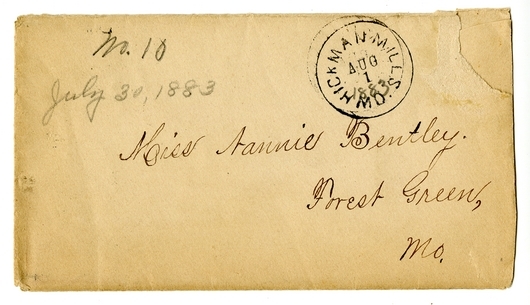 No. 10
July 30, 1883
HICKMAN MILLS
AUG
1
1883
MO.
Miss Nannie Bentley.
Forest Green,
Mo.